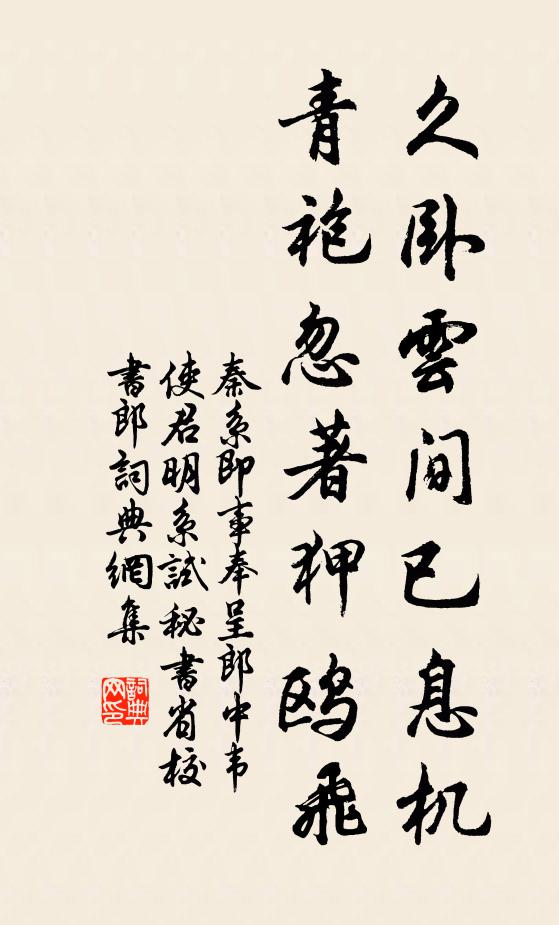 久卧雲间已息机
青袍忽著狎鸥飛
秦系即事奉呈郎中韦
使君明系試秘書省校
書郎詞典網集
詞典
网印